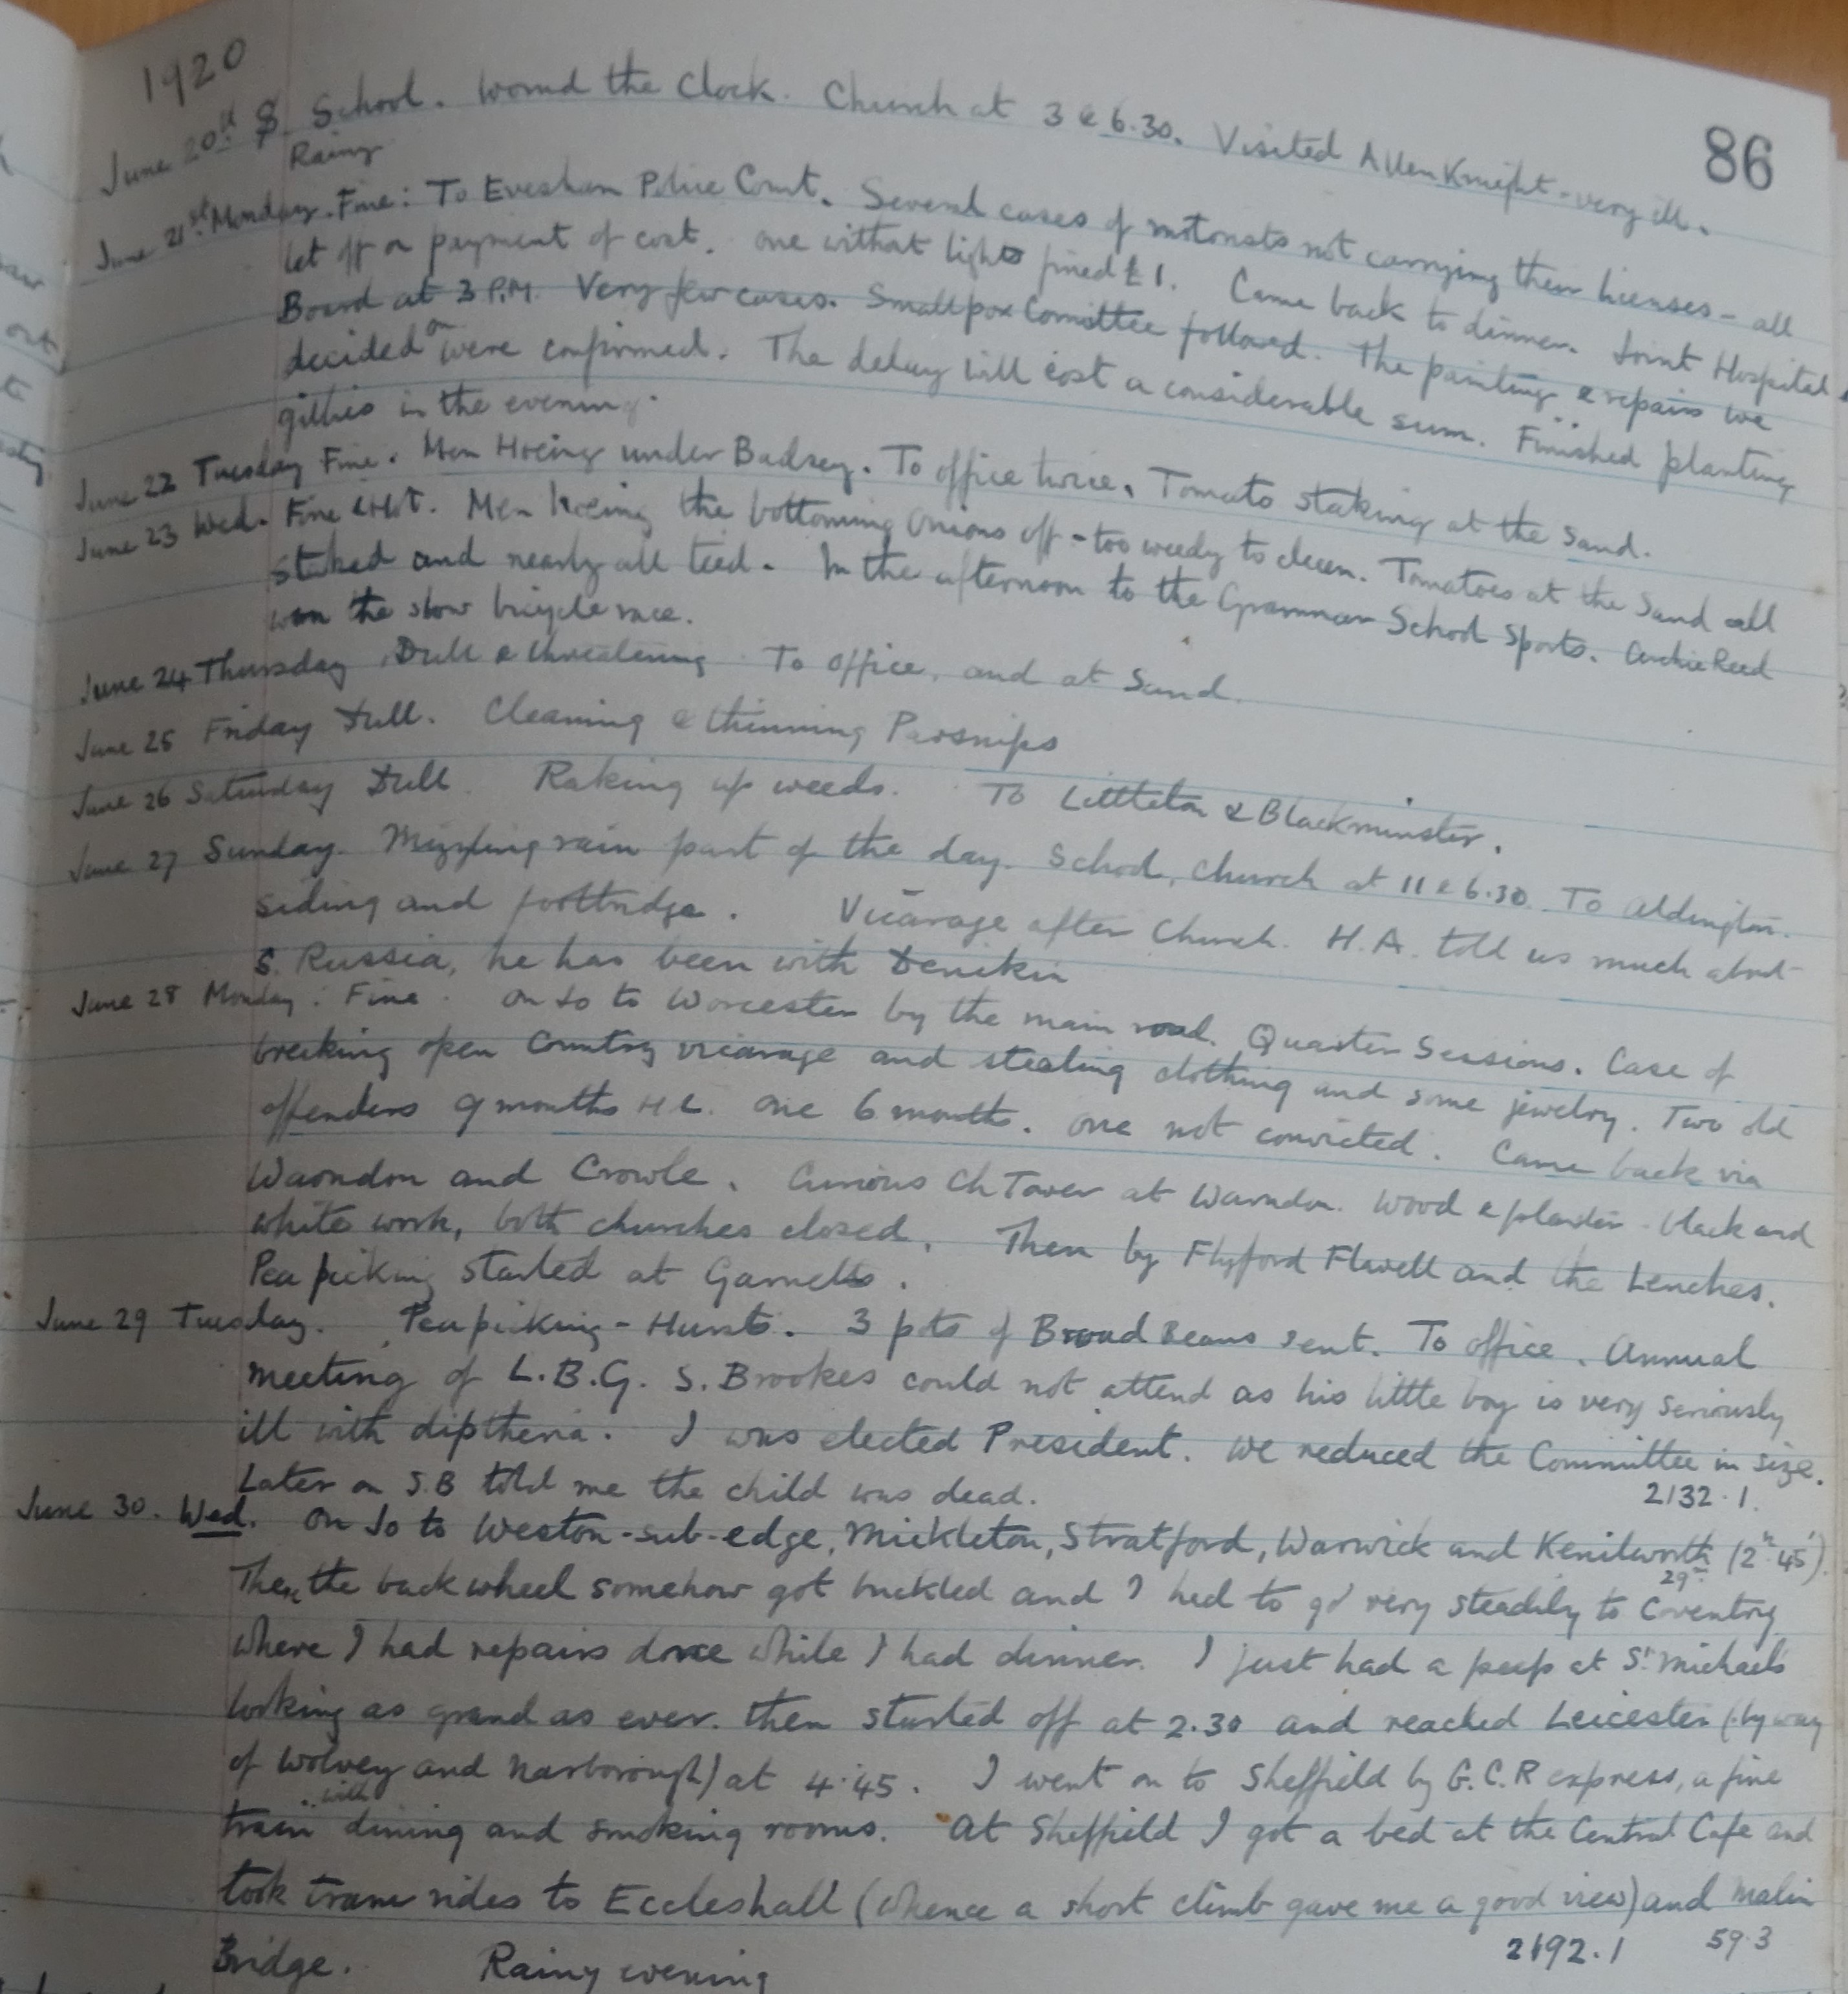 1920
86
June 20th S. School. Wound the Clock. Church at 3 & 6.30. Visited Allen Knight - very ill.
Rainy
June 21st Monday. Fine: To Evesham Police Court. Several cases of motorists not carrying their licenses - all
let off on payment of cost. One without lights fined £1. Came back to dinner. Joint Hospital
Board at 3 P.M. Very few cases. Smallpox Comittee followed. The painting & repairs we
decided on were confirmed. The delay will cost a considerable sum. Finished planting
gillies in the evening.
June 22 Tuesday Fine. Men Hoeing under Badsey. To office twice. Tomato staking at the Sand.
June 23 Wed. Fine & Hot. Men hoeing the bottoming onions off - too weedy to clean. Tomatoes at the Sand all
staked and nearly all tied. In the afternoon to the Grammar School Sports. Archie Reed
won the slow bicycle race.
June 24 Thursday Dull & threatening To office, and at Sand.
June 25 Friday Dull. Cleaning & thinning Parsnips
June 26 Saturday Dull. Raking up weeds. To Littleton & Blackminster.
June 27 Sunday. Mizzling rain part of the day. School, Church at 11 & 6.30. To Aldington
siding and footbridge. Vicarage after Church. H.A. told us much about
S. Russia, he has been with Denikin
June 28 Monday: Fine. On Jo to Worcester by the main road. Quarter Sessions. Case of
breaking open Country vicarage and stealing clothing and some jewelry. Two old
offenders 9 months H.L. one 6 months. one not convicted. Came back via
Warndon and Crowle. Curious Ch Tower at Warndon. Wood & plaster - black and
white work, both churches closed. Then by Flyford Flavell and the Lenches.
Pea picking started at Garnetts.
June 29 Tuesday. Pea picking - Hursts. 3 pts of Broad Beans sent. To office. Annual
meeting of L.B.G. S. Brookes could not attend as his little boy is very seriously
ill with diptheria. I was elected President. We reduced the Committee in size.
Later on S.B told me the child was dead. 2132.1.
June 30. Wed. On Jo to Weston-sub-edge, Mickleton, Stratford, Warwick and Kenilworth (2h 45').
29m
Then the back wheel somehow got buckled and I had to go very steadily to Coventry
where I had repairs done while I had dinner. I just had a peep at St Michaels
looking as grand as ever. then started off at 2.30 and reached Leicester (by way
of Wolvey and Narborough) at 4.45. I went on to Sheffield by G.C.R express, a fine
train with dining and smoking rooms. At Sheffield I got a bed at the Central Cafe and
took tram rides to Eccleshall (whence a short climb gave me a good view) and Malin
Bridge. Rainy evening 2192.1 59.3